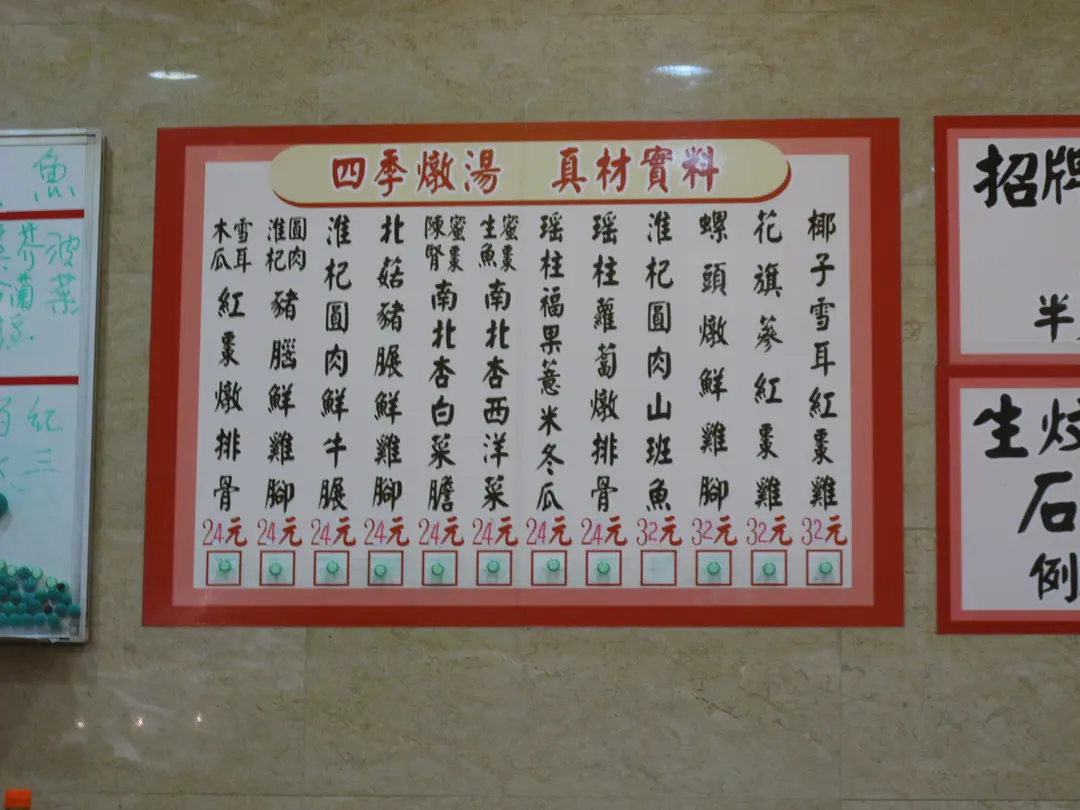 四季燉湯 真材實料
椰子雪耳紅棗雞 32元
花旗參紅棗雞 32元
螺頭燉鮮雞腳 32元
淮杞圓肉山班魚 32元
瑶柱蘿蔔燉排骨 24元
瑶柱福果薏米冬瓜 24元
蜜棗生魚南北杏西洋菜 24元
蜜棗陳腎南北杏白菜膽 24元
北菇豬𦟌鮮雞腳 24元
圓肉淮杞豬腦鮮雞腳 24元
淮杞圓肉鮮牛𦟌 24元
雪耳木瓜紅棗燉排骨 24元
招牌
半
生炆
石
例
魚
菠菜
芥蘭
紅
三